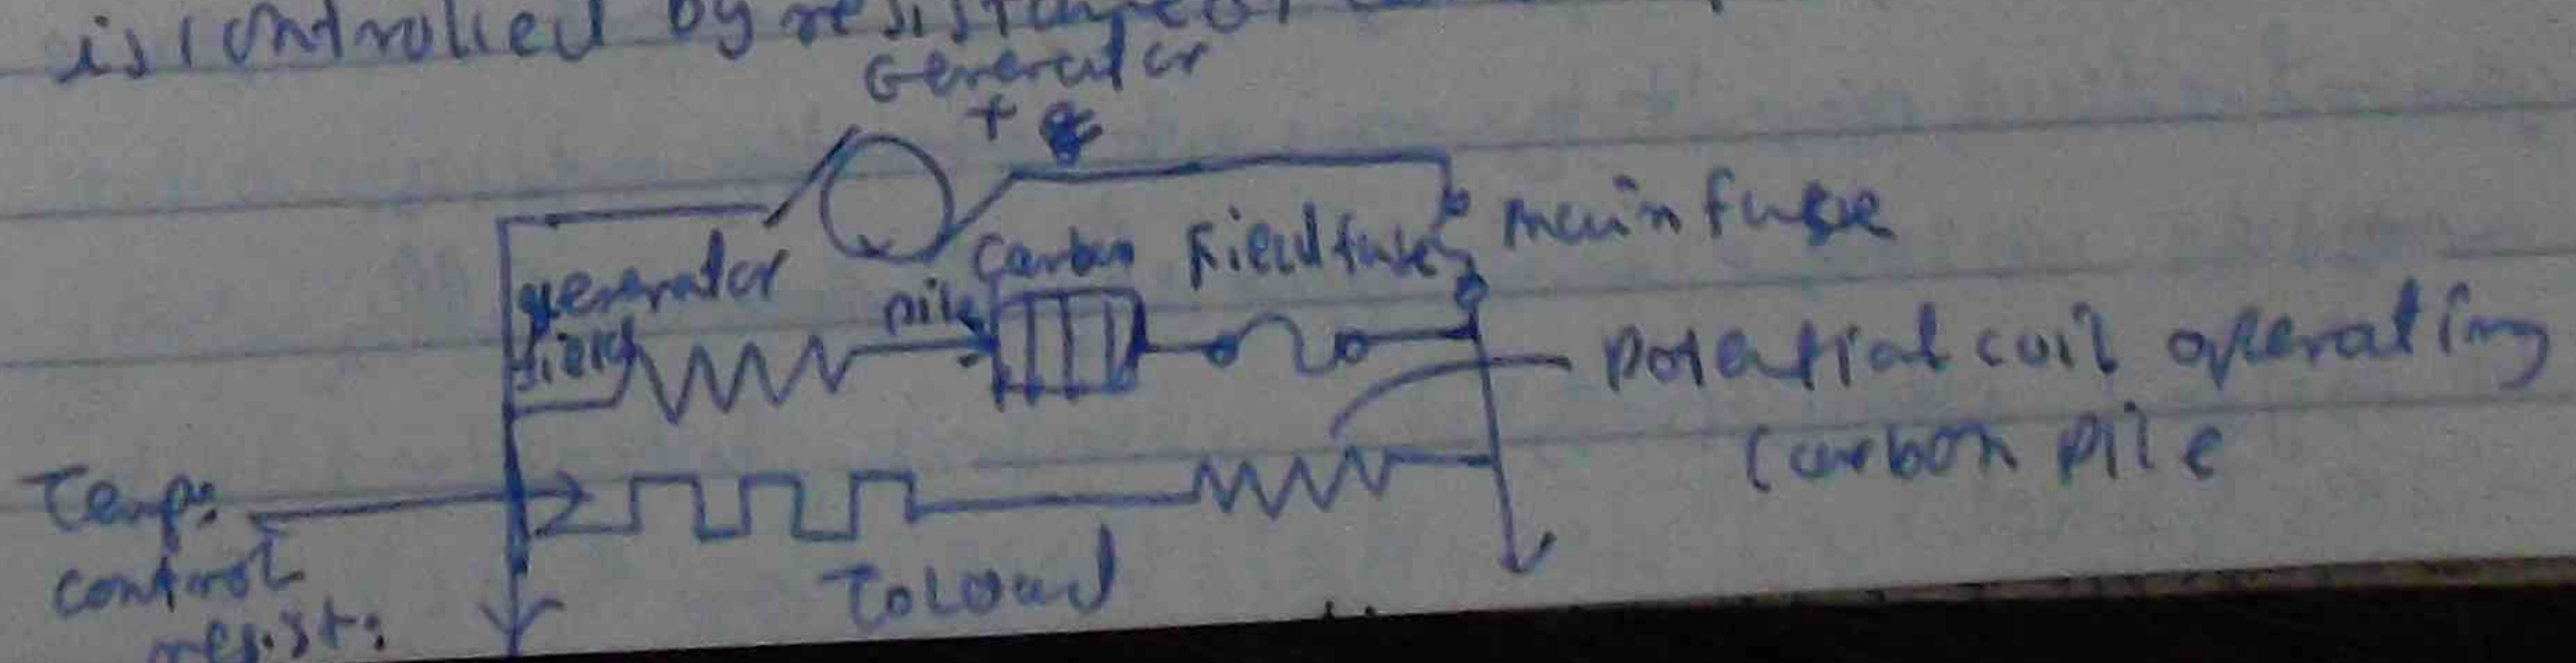 is controlled by resistance of
Generator
+
main fuse
Carbon
pile
Field fuse
generator
field
Potential coil operating
Carbon pile
Temp:
control
resist:
To Load